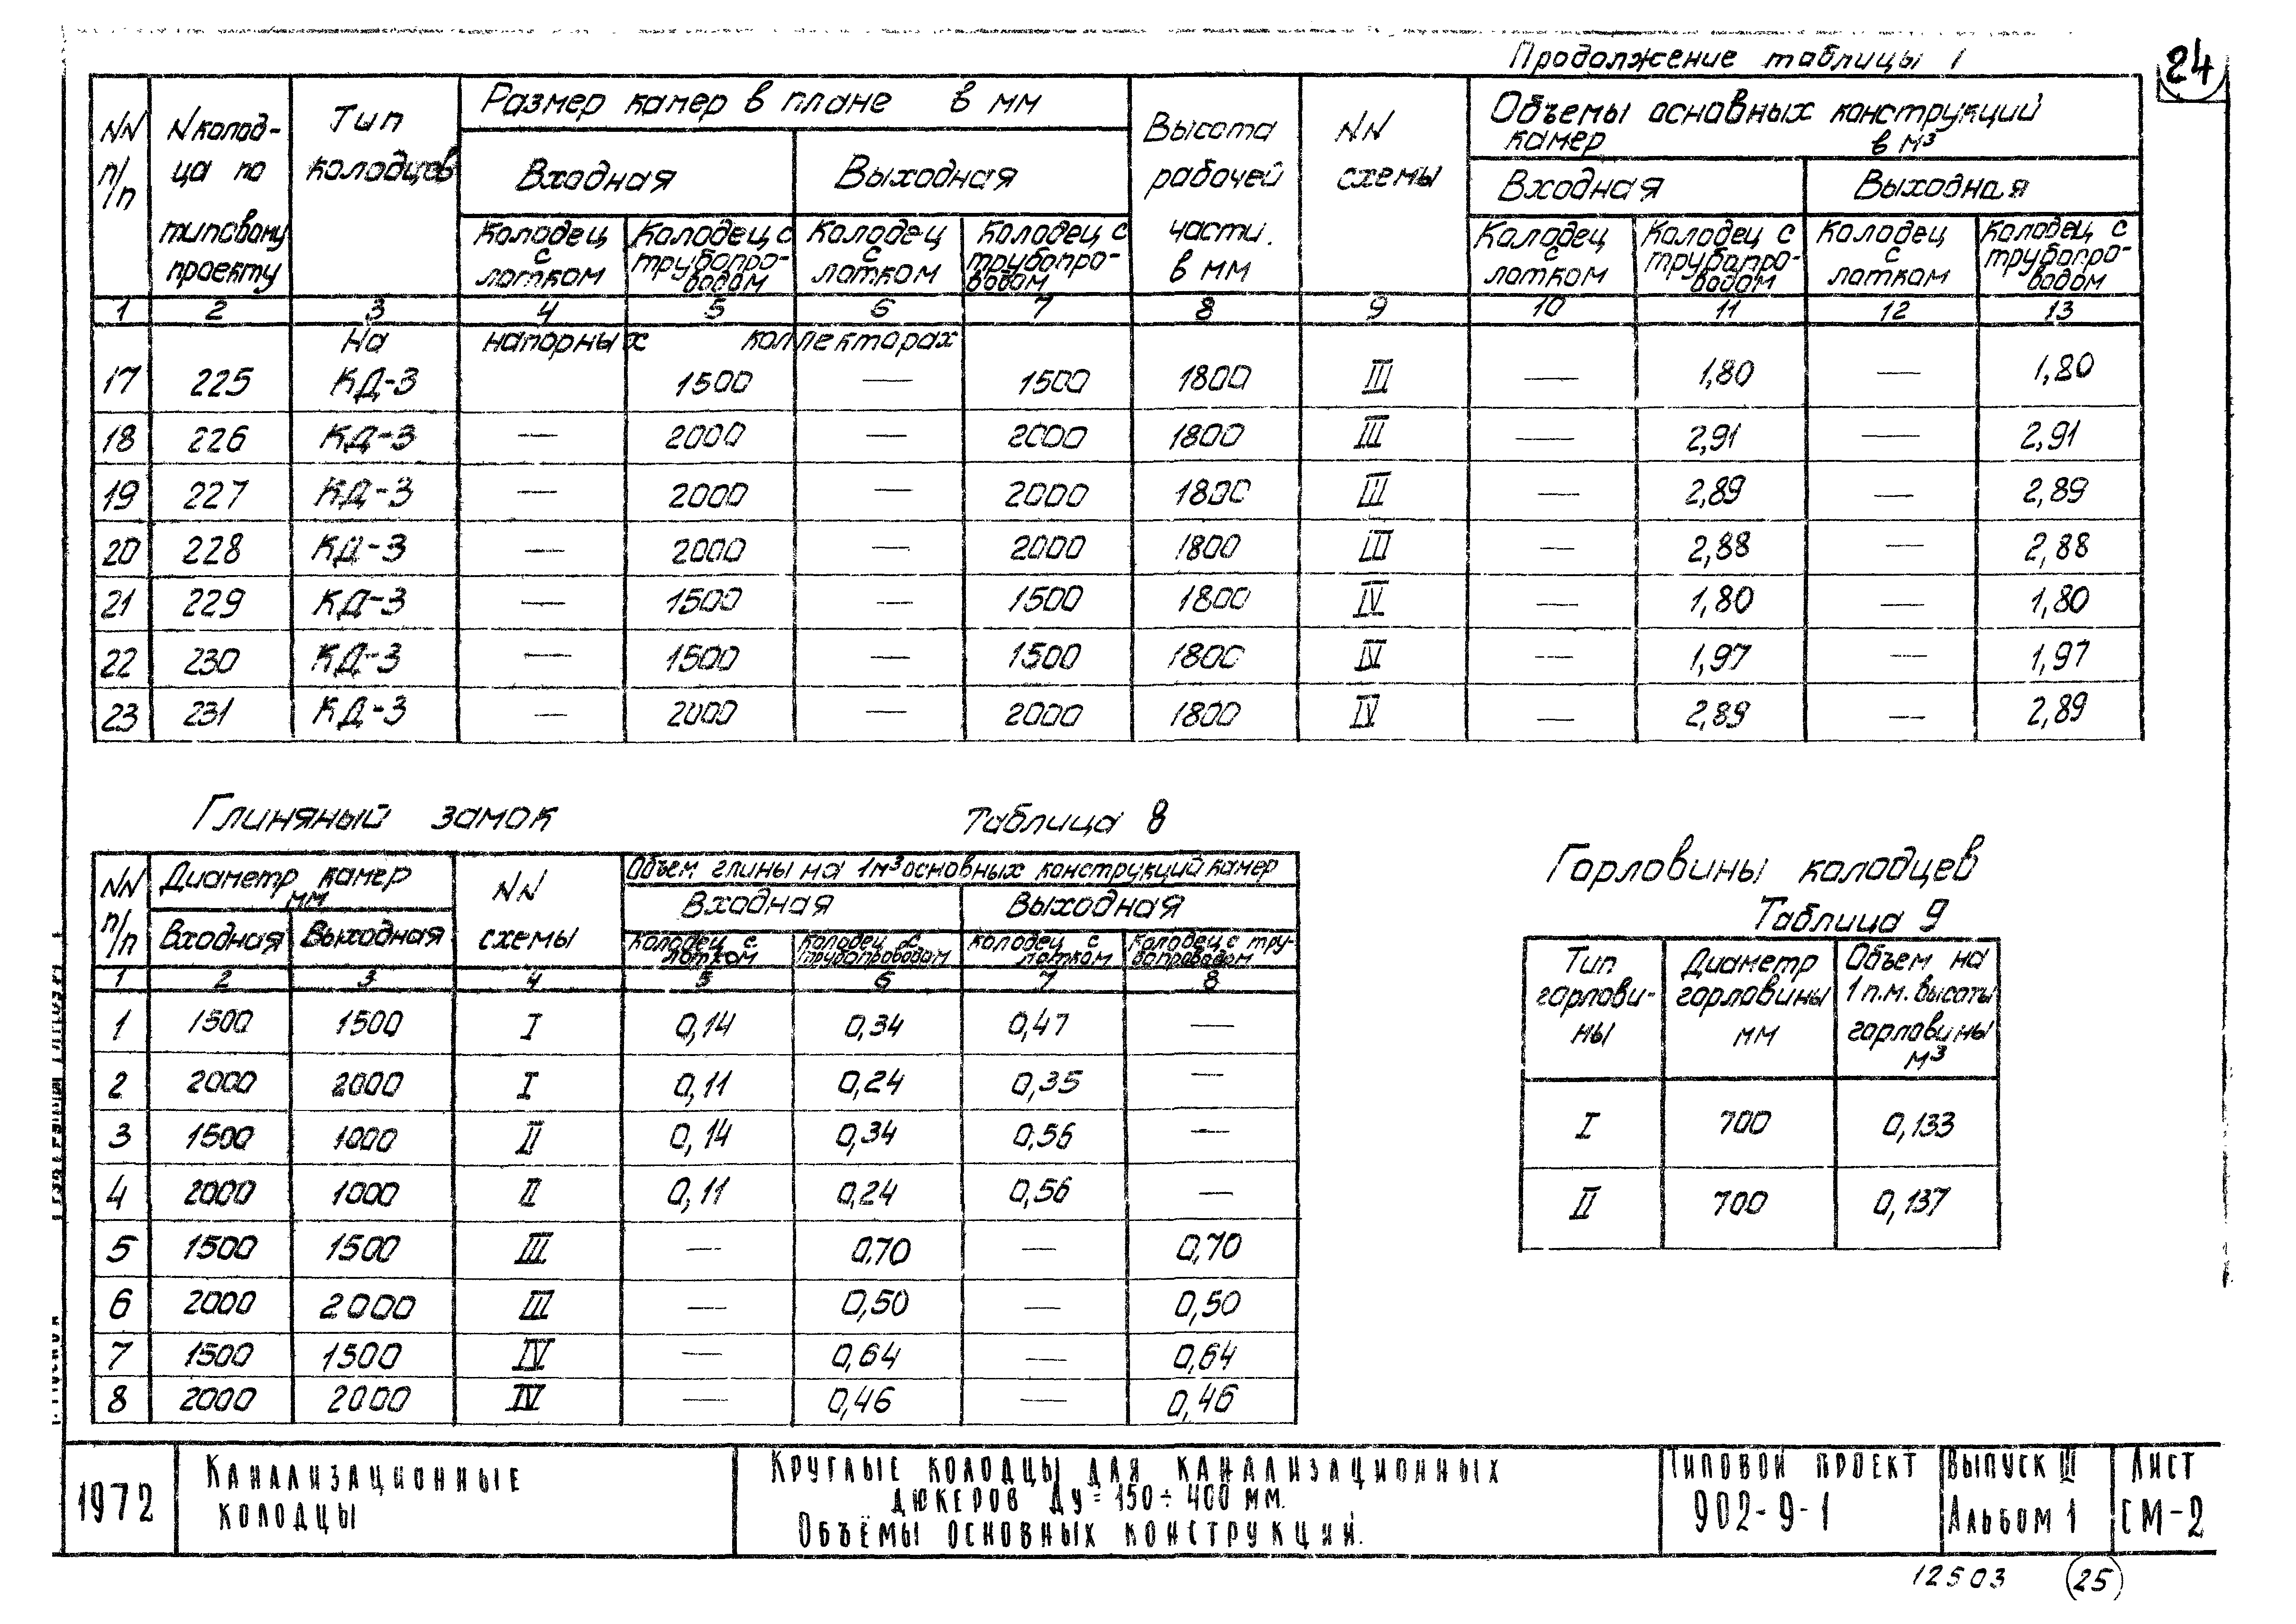 24
Продолжение таблицы 1
NN п/п | N колод-ца по типовому проекту | Тип колодцев | Размер камер в плане в мм | Высота рабочей части в мм | NN схемы | Объемы основных конструкций камер в м³
Входная | Выходная | Входная | Выходная
Колодец с лотком | Колодец с трубопро-водом | Колодец с лотком | Колодец с трубопро-водом | Колодец с лотком | Колодец с трубопро-водом | Колодец с лотком | Колодец с трубопро-водом
1 | 2 | 3 | 4 | 5 | 6 | 7 | 8 | 9 | 10 | 11 | 12 | 13
На напорных коллекторах
17 | 225 | КД-3 | | 1500 | — | 1500 | 1800 | III | — | 1,80 | — | 1,80
18 | 226 | КД-3 | — | 2000 | — | 2000 | 1800 | III | — | 2,91 | — | 2,91
19 | 227 | КД-3 | — | 2000 | — | 2000 | 1800 | III | — | 2,89 | — | 2,89
20 | 228 | КД-3 | — | 2000 | — | 2000 | 1800 | III | — | 2,88 | — | 2,88
21 | 229 | КД-3 | — | 1500 | — | 1500 | 1800 | IV | — | 1,80 | — | 1,80
22 | 230 | КД-3 | — | 1500 | — | 1500 | 1800 | IV | — | 1,97 | — | 1,97
23 | 231 | КД-3 | — | 2000 | — | 2000 | 1800 | IV | — | 2,89 | — | 2,89
Глиняный замок Таблица 8
NN п/п | Диаметр камер мм | NN схемы | Объем глины на 1м³ основных конструкций камер
Входная | Выходная | Входная | Выходная
Колодец с лотком | Колодец с трубопроводом | Колодец с лотком | Колодец с тру-бопроводом
1 | 2 | 3 | 4 | 5 | 6 | 7 | 8
1 | 1500 | 1500 | I | 0,14 | 0,34 | 0,47 | —
2 | 2000 | 2000 | I | 0,11 | 0,24 | 0,35 | —
3 | 1500 | 1000 | II | 0,14 | 0,34 | 0,56 | —
4 | 2000 | 1000 | II | 0,11 | 0,24 | 0,56 | —
5 | 1500 | 1500 | III | — | 0,70 | — | 0,70
6 | 2000 | 2000 | III | — | 0,50 | — | 0,50
7 | 1500 | 1500 | IV | — | 0,64 | — | 0,64
8 | 2000 | 2000 | IV | — | 0,46 | — | 0,46
Горловины колодцев
Таблица 9
Тип горлови-ны | Диаметр горловины мм | Объем на 1 п.м. высоты горловины м³
I | 700 | 0,133
II | 700 | 0,137
1972
Канализационные
колодцы
Круглые колодцы для канализационных
дюкеров Ду= 150÷400 мм.
Объёмы основных конструкций.
Типовой проект
902-9-1
Выпуск III
Альбом 1
Лист
СМ-2
12503 25